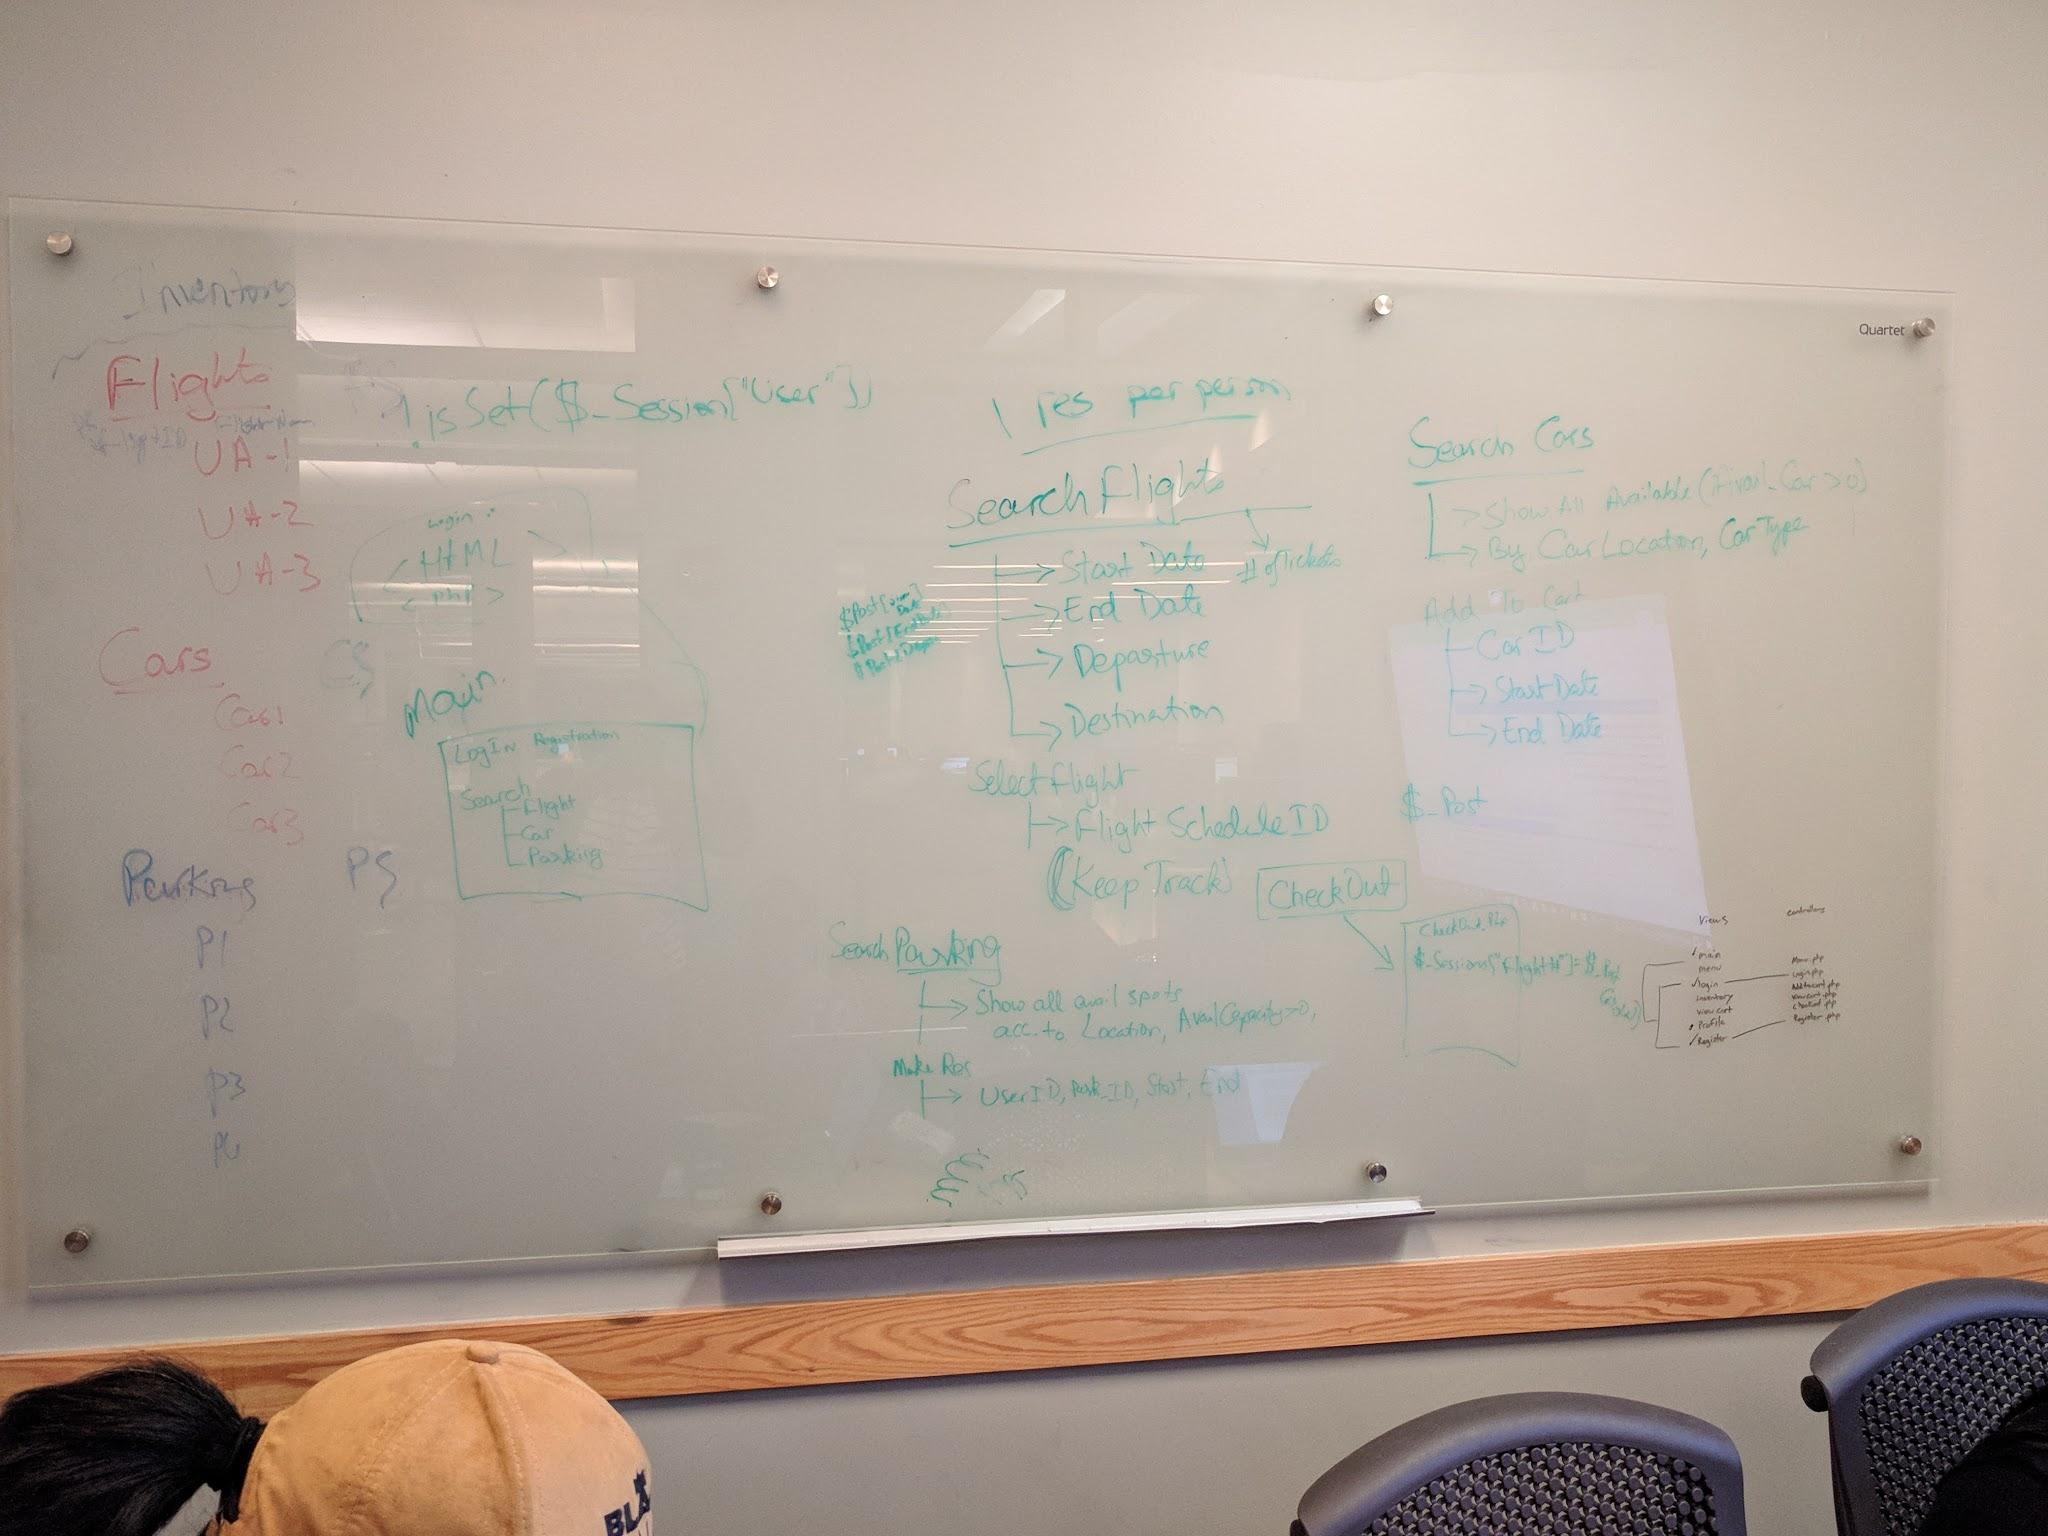 Inventory
Flights
FS
FlightID
UA-1
UA-2
UA-3
Cars
CS
Car1
Car2
Car3
Parking
PS
P1
P2
P3
!isSet($_Session["User"])
Login
< HTML >
< php >
Main
LogIn Registration
Search
Flight
Car
Parking
1 res per person
Search Flights
# of Tickets
Start Date
End Date
Departure
Destination
Select flight
Flight Schedule ID
(Keep Track)
CheckOut
Search Parking
Show all avail spots
acc. to Location, AvailCapacity>0,
Make Res
UserID, Park_ID, Start, End
Quartet
Search Cars
Show All Available (Avail_Car >0)
By Car Location, Car Type
Add To Cart
Car ID
Start Date
End Date
$_Post
$_Session["Flight#"]=$_Post
Views
main
menu
login
inventory
view cart
Profile
Register
Controllers
Menu.php
Login.php
Addtocart.php
Viewcart.php
Checkout.php
Register.php